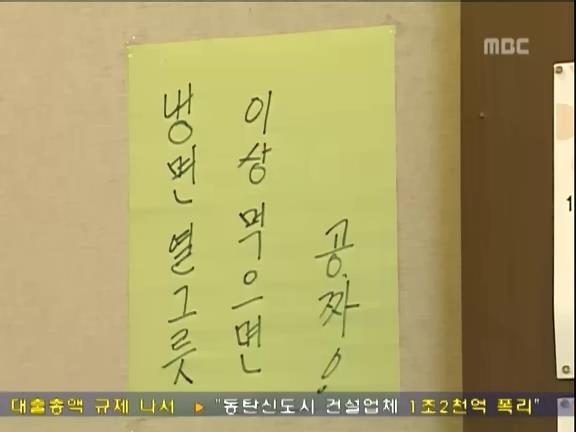 MBC
냉면 열그릇
이상 먹으면
공.짜!
1
대출총액 규제 나서 ▶ "동탄신도시 건설업체 1조2천억 폭리"